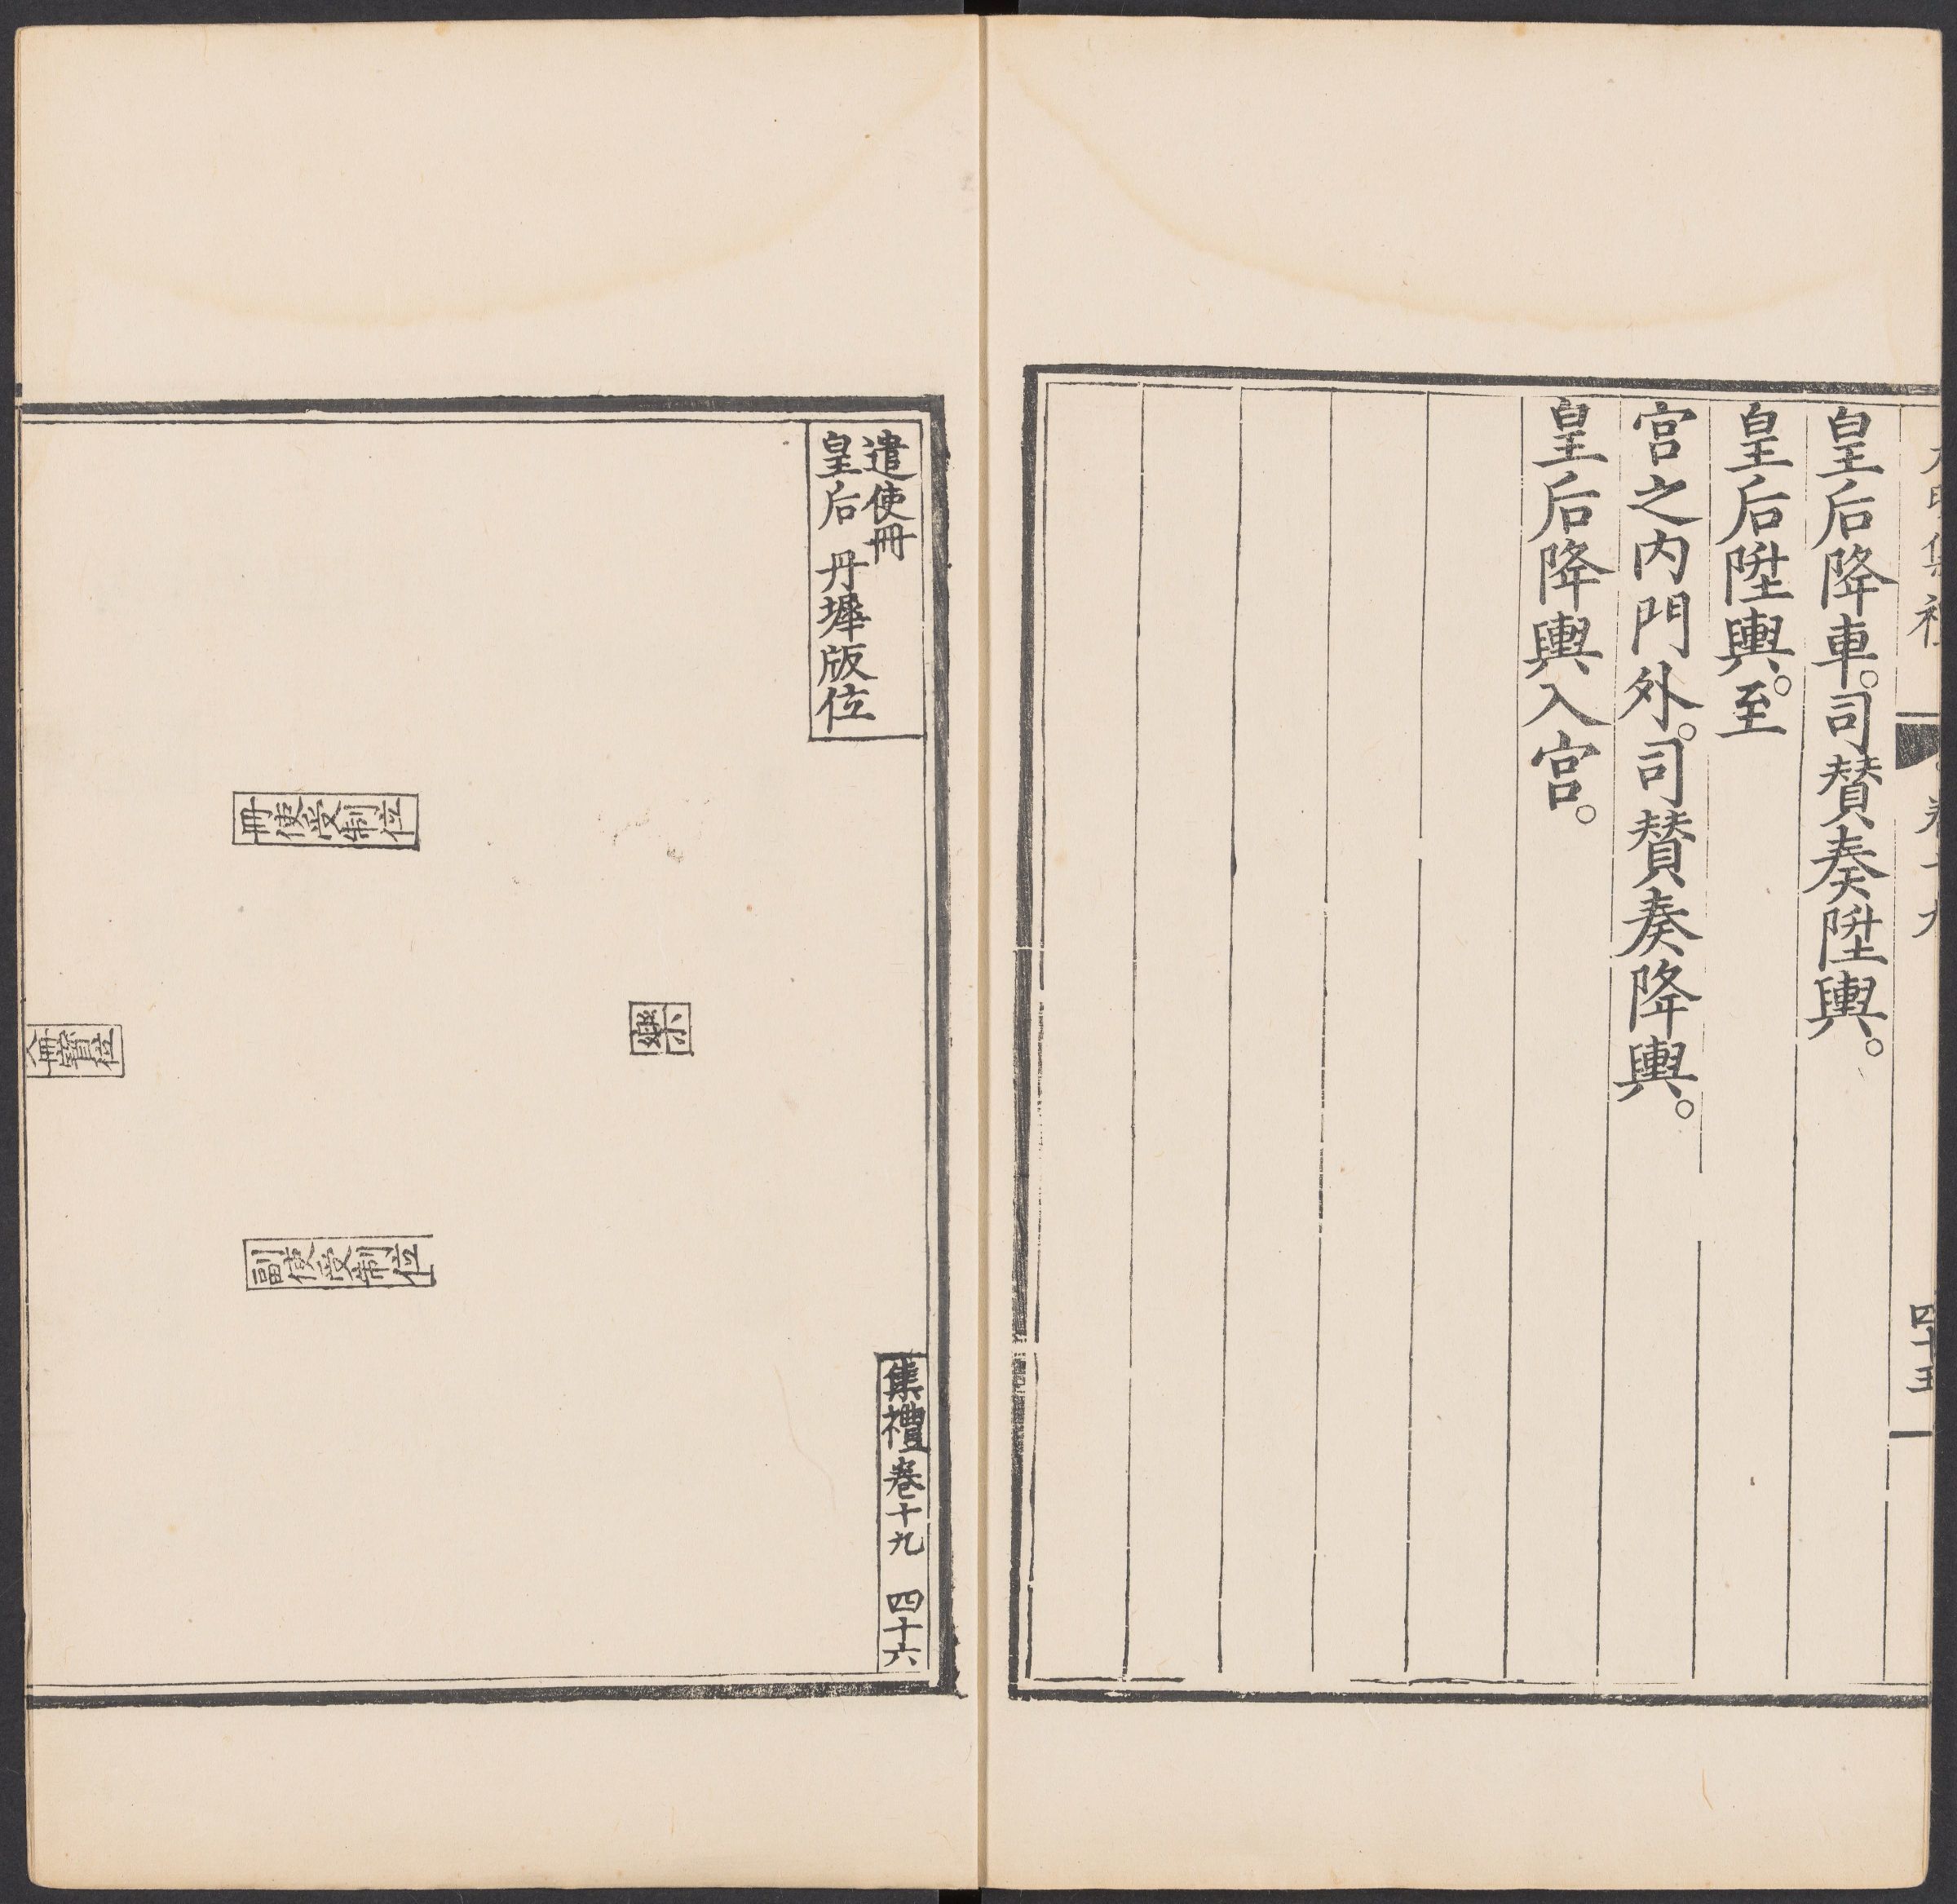 皇后降車。司賛奏陞輿。
皇后陞輿。至
宮之内門外。司賛奏降輿。
皇后降輿入宮。
四十五
遣使冊
皇后
丹墀版位
樂
冊使受制位
副使受制位
冊寶位
集禮卷十九 四十六